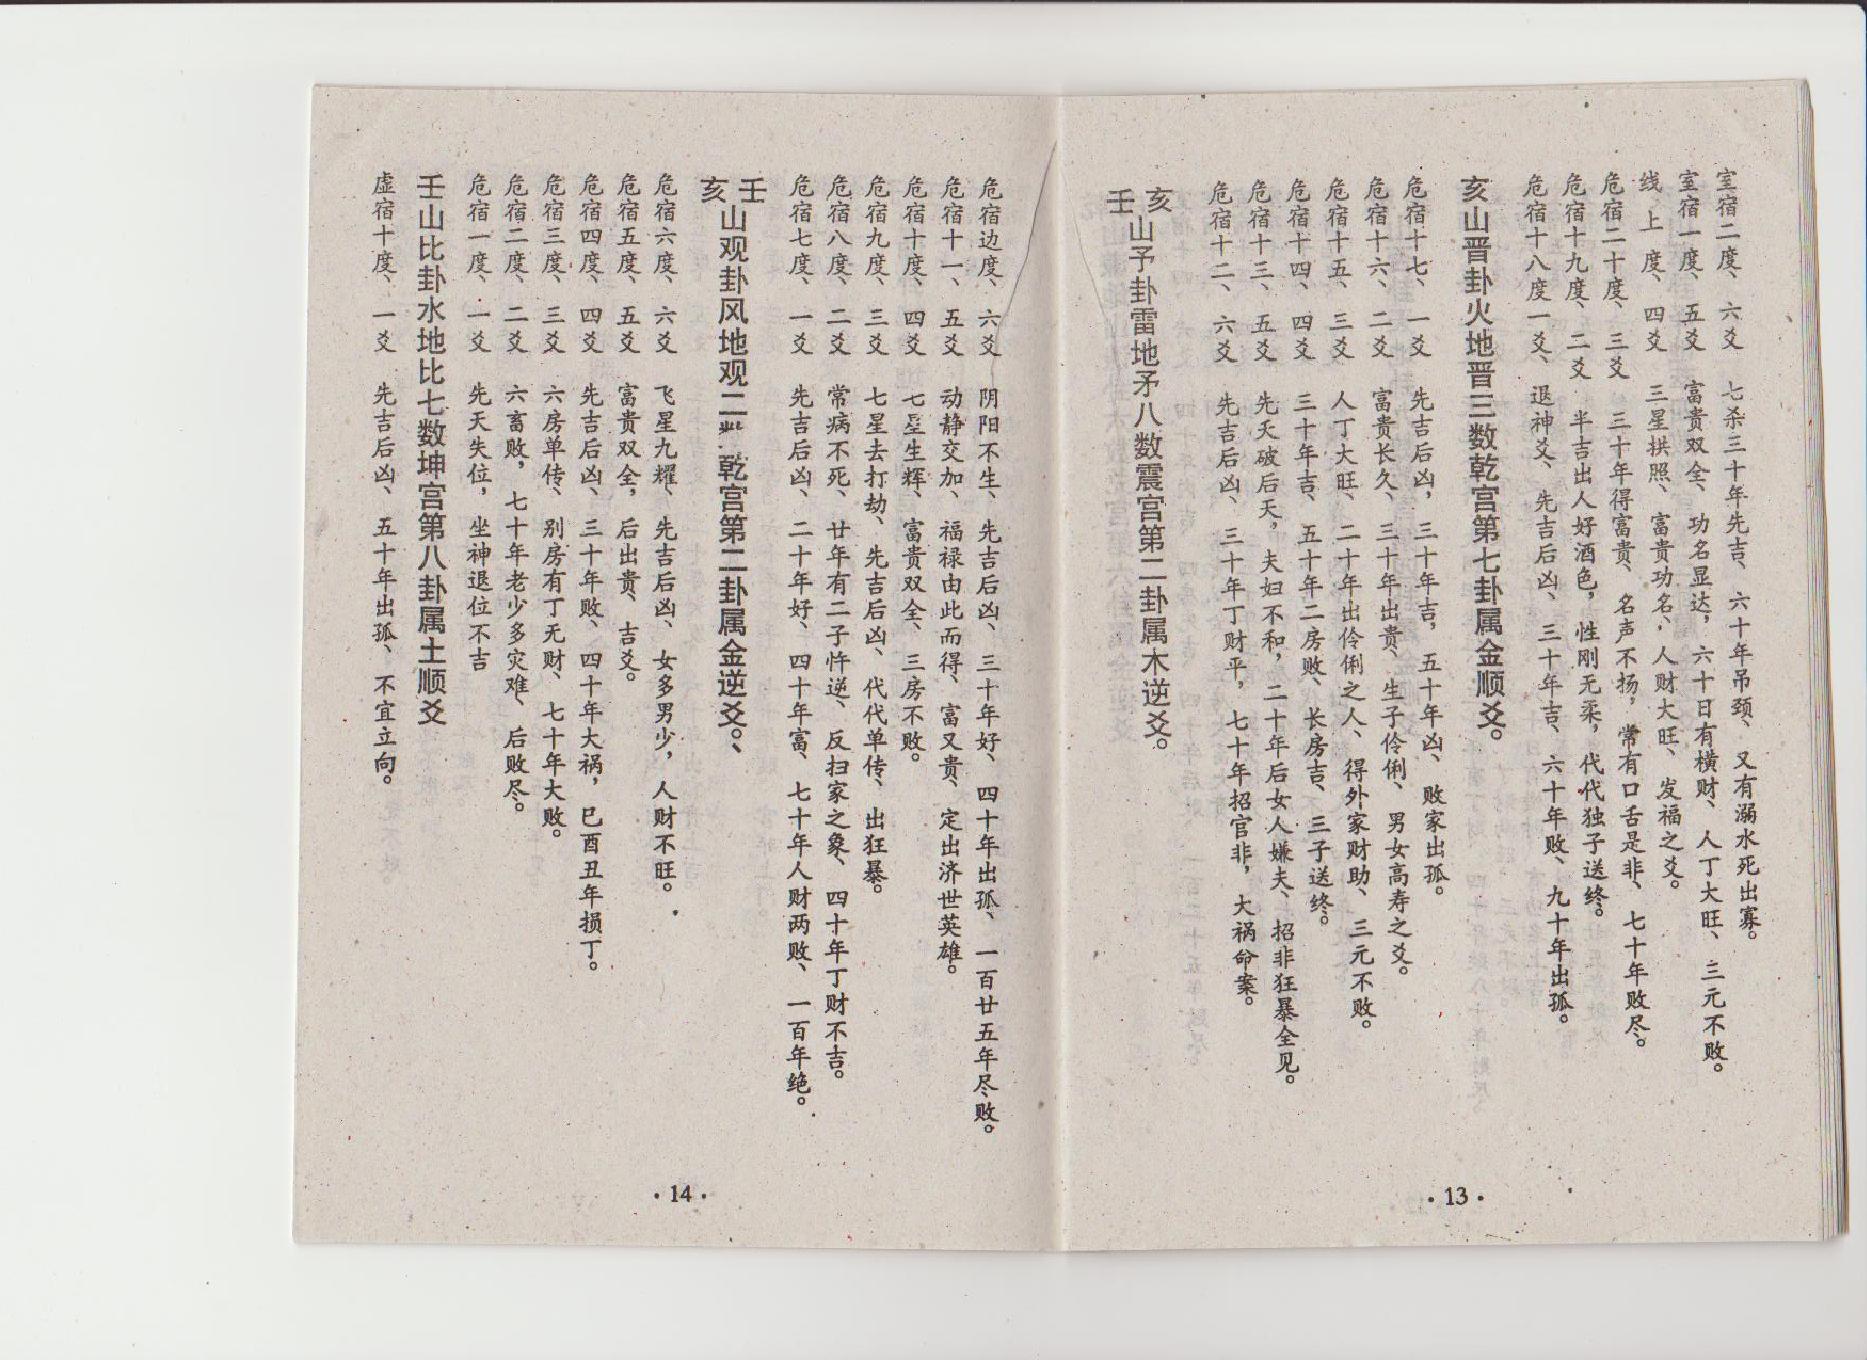 室宿二度、六爻 七杀三十年先吉、六十年吊颈、又有溺水死出寡。
室宿一度、五爻 富贵双全、功名显达，六十日有横财、人丁大旺、三元不败。
线上度、四爻 三星拱照、富贵功名、人财大旺、发福之爻。
危宿二十度、三爻 三十年得富贵、名声不扬，常有口舌是非、七十年败尽。
危宿十九度、二爻 半吉出人好酒色，性刚无柔，代代独子送终。
危宿十八度一爻、退神爻、先吉后凶、三十年吉、六十年败、九十年出孤。
亥山晋卦火地晋三数乾宫第七卦属金顺爻。
危宿十七、一爻 先吉后凶，三十年吉，五十年凶、败家出孤。
危宿十六、二爻 富贵长久、三十年出贵、生子伶俐、男女高寿之爻。
危宿十五、三爻 人丁大旺、二十年出伶俐之人、得外家财助、三元不败。
危宿十四、四爻 三十年吉、五十年二房败、长房吉、三子送终。
危宿十三、五爻 先天破后天，夫妇不和，二十年后女人嫌夫、招非狂暴全见。
危宿十二、六爻 先吉后凶、三十年丁财平，七十年招官非，大祸命案。
亥壬山予卦雷地矛八数震宫第二卦属木逆爻。
·13·
危宿边度、六爻 阴阳不生、先吉后凶、三十年好、四十年出孤、一百廿五年尽败。
危宿十一、五爻 动静交加、福禄由此而得、富又贵、定出济世英雄。
危宿十度、四爻 七星生辉、富贵双全、三房不败。
危宿九度、三爻 七星去打劫、先吉后凶、代代单传、出狂暴。
危宿八度、二爻 常病不死、廿年有二子忤逆、反扫家之象、四十年丁财不吉。
危宿七度、一爻 先吉后凶、二十年好、四十年富、七十年人财两败、一百年绝。
壬亥山观卦风地观二 乾宫第二卦属金逆爻。、
危宿六度、六爻 飞星九耀、先吉后凶、女多男少，人财不旺。
危宿五度、五爻 富贵双全，后出贵、吉爻。
危宿四度、四爻 先吉后凶、三十年败、四十年大祸，巳酉丑年损丁。
危宿三度、三爻 六房单传、别房有丁无财、七十年大败。
危宿二度、二爻 六畜败，七十年老少多灾难、后败尽。
危宿一度、一爻 先天失位，坐神退位不吉
壬山比卦水地比七数坤宫第八卦属土顺爻
虚宿十度、一爻 先吉后凶、五十年出孤、不宜立向。
·14·